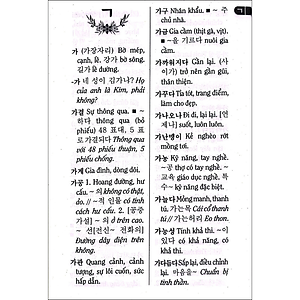 ㄱ
가 (가장자리) Bờ mép,
cạnh, lề, 강가 bờ sông.
길가 lề đường.
-가 네 성이 김가냐? Họ
của anh là Kim, phải
không?
가결 Sự thông qua. ■ ~
하다 thông qua (bỏ
phiếu) 48 표대, 5 표
로 가결되다 Thông qua
với 48 phiếu thuận, 5
phiếu chống.
가계 Gia đình, dòng dõi.
가공 1. Hoang đường, hư
cấu. ~의 không có thật,
do. // ~적 인물 có tính
cách hư cấu. 2. [공중
가설] ~의 ở trên cao. ~
선[전신~ 전화의]
Đường dây điện trên
không.
가관 Quang cảnh, cảnh
tượng, sự lôi cuốn, sức
hấp dẫn.
ㄱ
가구 Nhân khẩu. ■ ~주
chủ nhà.
가금 Gia cầm (thịt gà, vịt).
■ ~을 기르다 nuôi gia
cầm.
가까워지다 Gần lại. (사
이가) trở nên gần gũi,
thân thiện.
가꾸다 Tỉa tót, trang điểm,
làm cho đẹp.
가나오나 Đi đi, lại lại. [언제
나] suốt, luôn luôn.
가난뱅이 Kẻ nghèo rớt
mồng tơi.
가능 Kỹ năng, tay nghề.
~공 thợ có tay nghề.
교육 giáo dục nghề. 특
수~ kỹ năng đặc biệt.
가늘다 Mỏng manh, thanh
tú. 가는목 Cái cổ thanh
tú // 가는허리 Eo thon.
가능성 Tính khả thi. ~이
있다 có khả năng, có
khả thi.
가다듬다 Sắp lại, điều chỉnh
lại. 마음을~ Chuẩn bị
tinh thần.